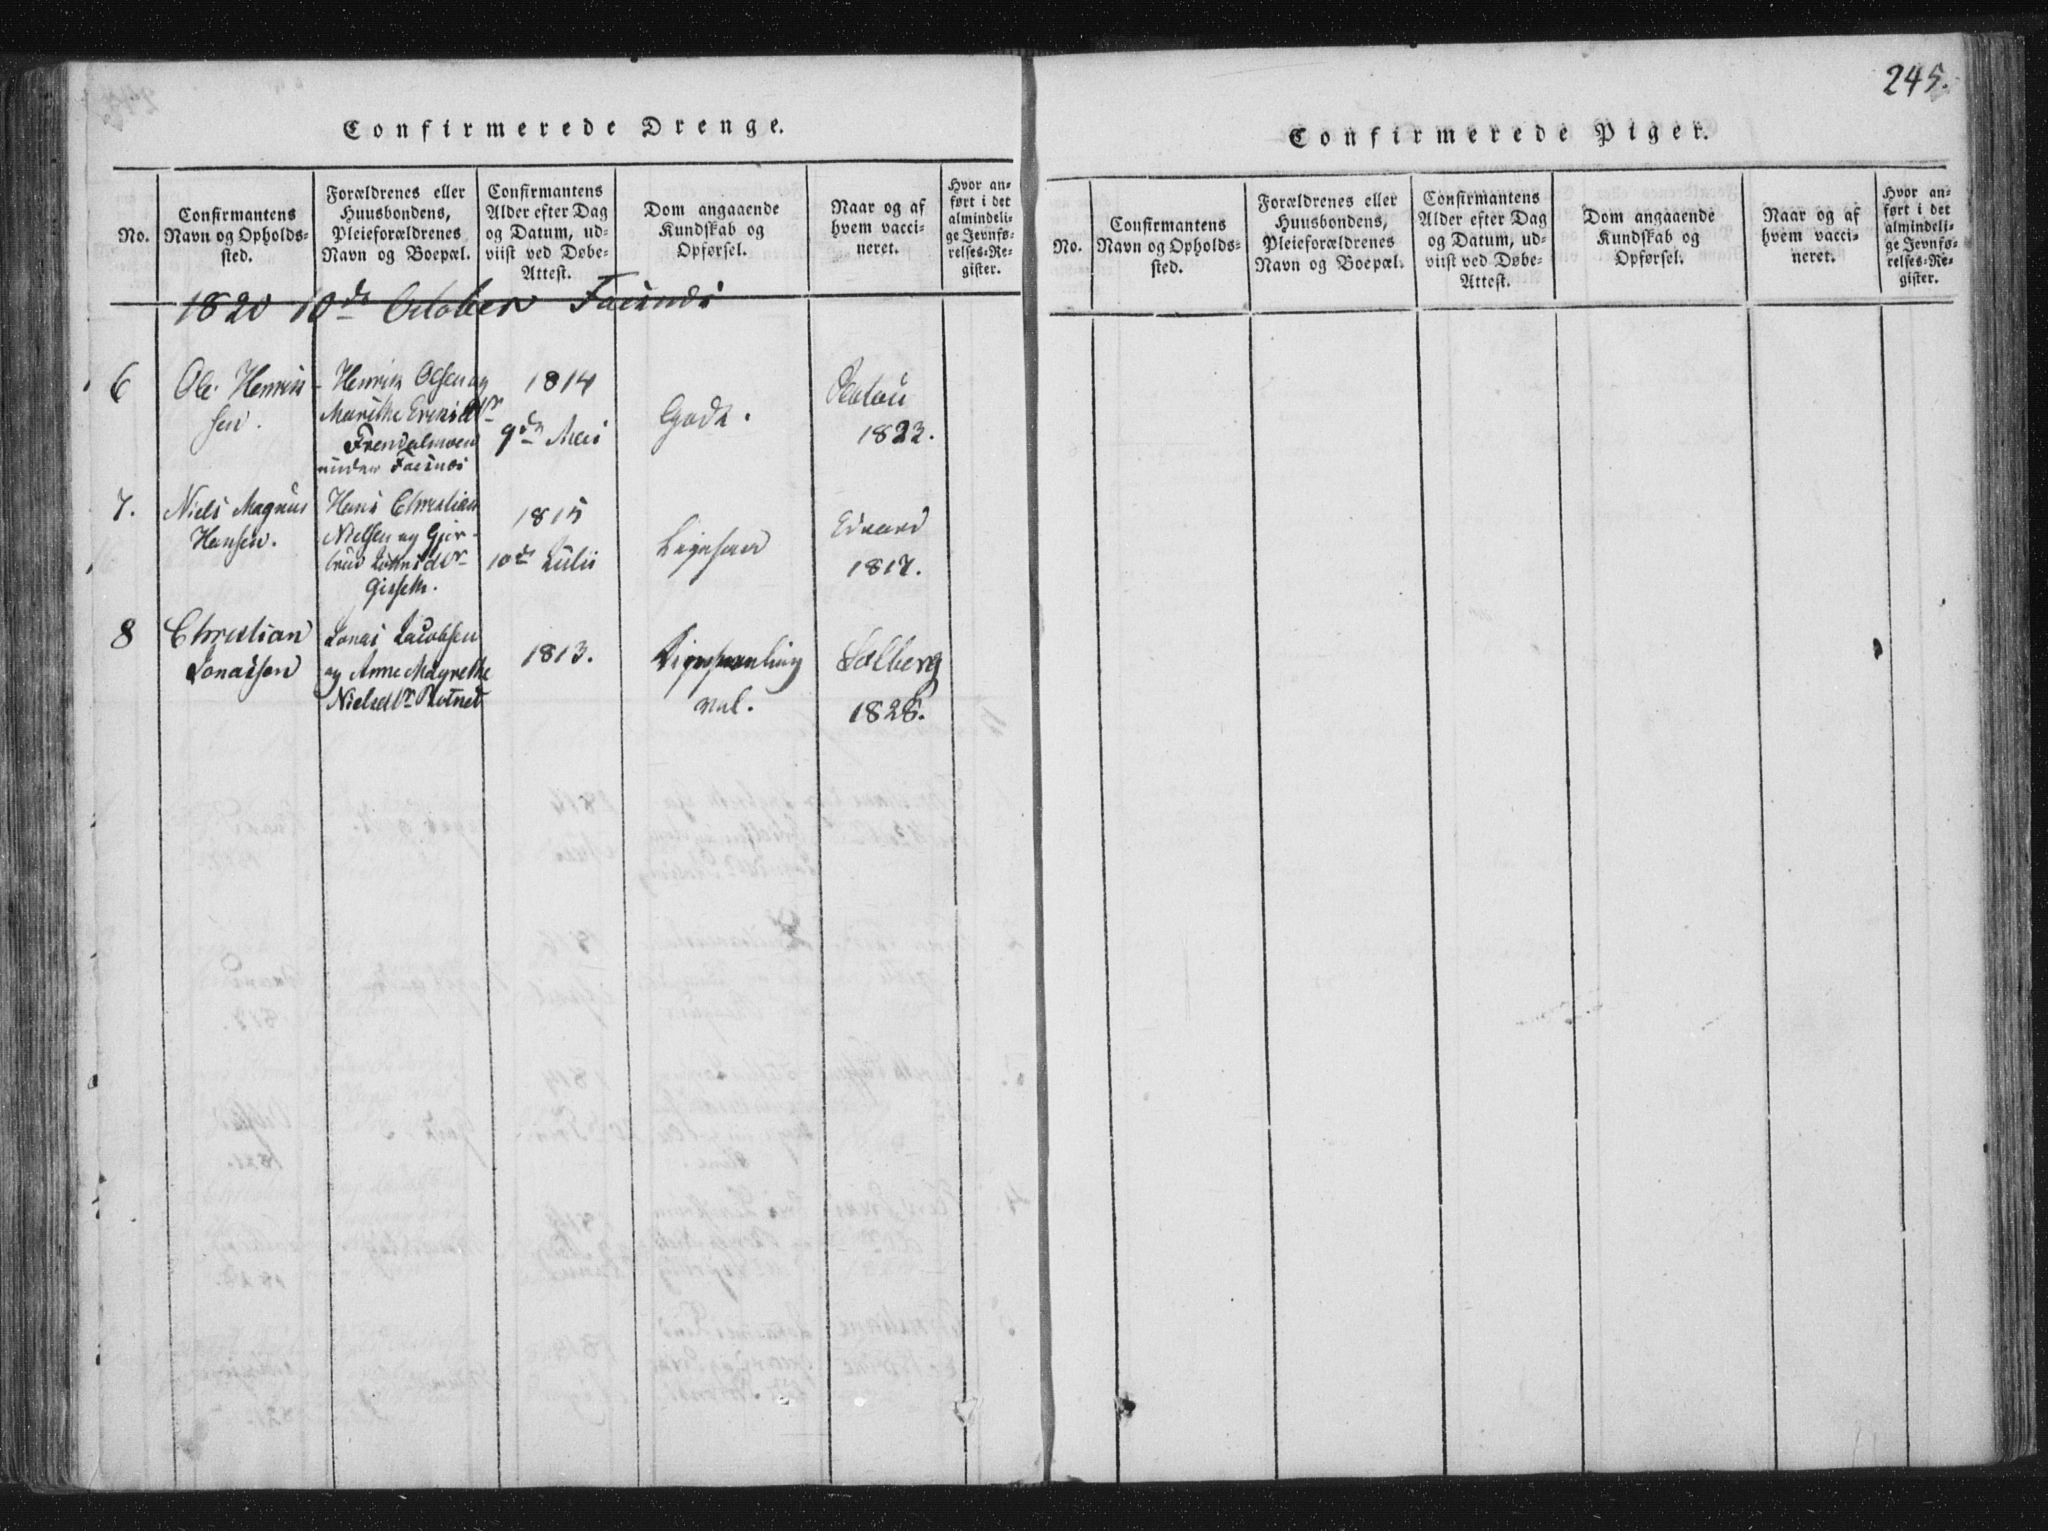 245.
Confirmerede Drenge.
No.
Confirmantens
Navn og Opholds-
sted.
Forældrenes eller
Huusbondens,
Pleieforældrenes
Navn og Boepæl.
Confirmantens
Alder efter Dag
og Datum, ud-
viist ved Døbe-
Attest.
Dom angaaende
Kundskab og
Opførsel.
Naar og af
hvem vacci-
neret.
Hvor an-
ført i det
almindeli-
ge Jevnfø-
relses-Re-
gister.
10de October
6
Ole Henrik
sen.
Henrik Olsen og
Marithe
1814
9de Mai
Godt.
1823.
7.
Niels Magnus
Hansen.
Hans Christian
Nielsen og Gjer-
1815
10de Julii
Ligesaa
Edvard
1817.
8
Christian
Jonassen
Jonas Jacobsen
og Anne Magrethe
Nielsdr
1813.
vel.
Solberg
1828.
Confirmerede Piger.
No.
Confirmantens
Navn og Opholds-
sted.
Forældrenes eller
Huusbondens,
Pleieforældrenes
Navn og Boepæl.
Confirmantens
Alder efter Dag
og Datum, ud-
viist ved Døbe-
Attest.
Dom angaaende
Kundskab og
Opførsel.
Naar og af
hvem vacci-
neret.
Hvor an-
ført i det
almindeli-
ge Jevnfø-
relses-Re-
gister.